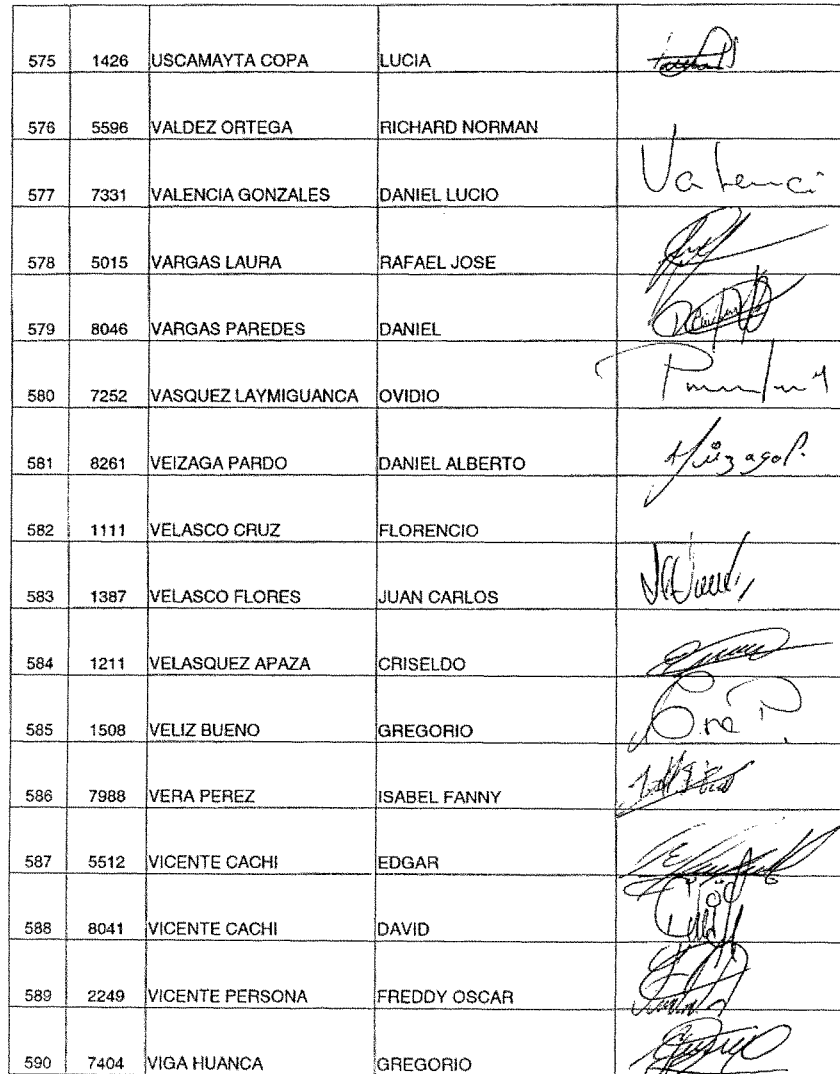 575 1426 USCAMAYTA COPA LUCIA
576 5596 VALDEZ ORTEGA RICHARD NORMAN
577 7331 VALENCIA GONZALES DANIEL LUCIO Valenci
578 5015 VARGAS LAURA RAFAEL JOSE
579 8046 VARGAS PAREDES DANIEL
580 7252 VASQUEZ LAYMIGUANCA OVIDIO
581 8261 VEIZAGA PARDO DANIEL ALBERTO
582 1111 VELASCO CRUZ FLORENCIO
583 1387 VELASCO FLORES JUAN CARLOS
584 1211 VELASQUEZ APAZA CRISELDO
585 1508 VELIZ BUENO GREGORIO
586 7988 VERA PEREZ ISABEL FANNY
587 5512 VICENTE CACHI EDGAR
588 8041 VICENTE CACHI DAVID
589 2249 VICENTE PERSONA FREDDY OSCAR
590 7404 VIGA HUANCA GREGORIO